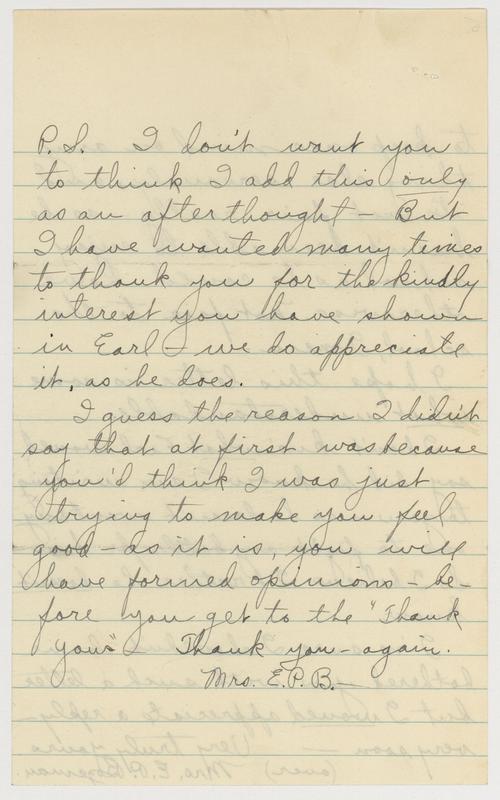 P.S. I don't want you
to think I add this only
as an after thought – But
I have wanted many times
to thank you for the kindly
interest you have shown
in Earl – we do appreciate
it, as he does.
I guess the reason I didn't
say that at first was because
you'd think I was just
trying to make you feel
good – as it is, you will
have formed opinions – be-
fore you get to the "Thank
yous" – Thank you – again.
Mrs. E.P.B. –